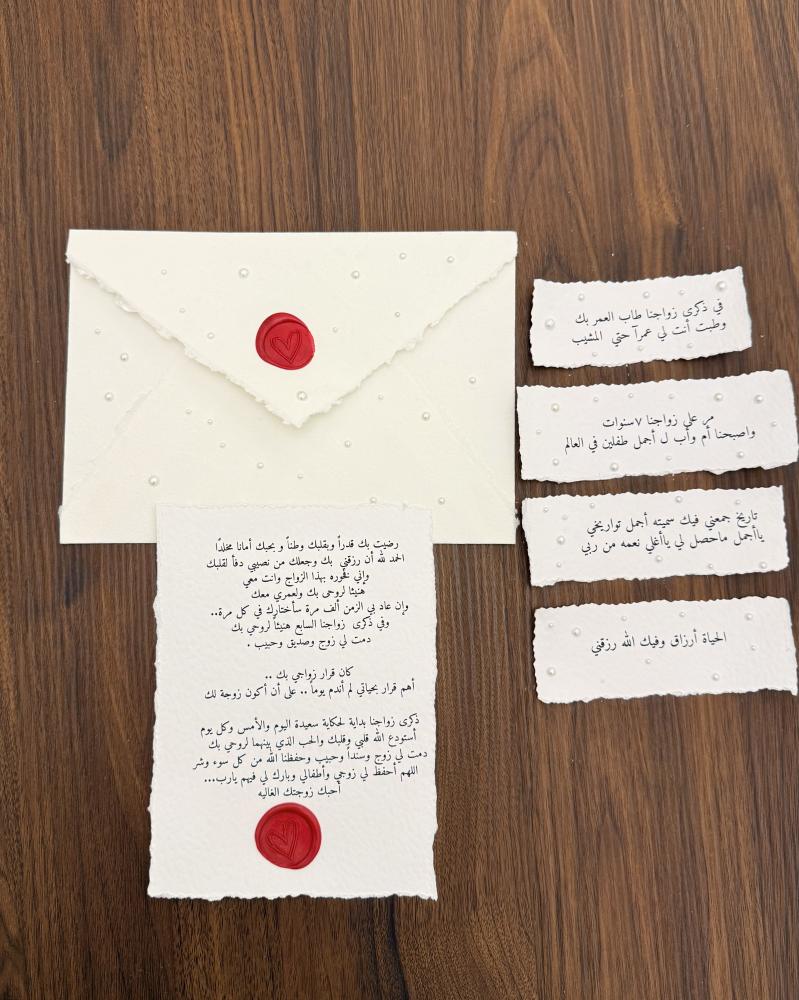 في ذكرى زواجنا طاب العمر بك
وطبت أنت لي عمرآ حتي المشيب
مر على زواجنا ٧سنوات
واصبحنا أم وأب ل أجمل طفلين في العالم
تاريخ جمعني فيك سميته أجمل تواريخي
ياأجمل ماحصل لي ياأغلي نعمه من ربي
الحياة أرزاق وفيك الله رزقني
رضيت بك قدراً وبقلبك وطناً و بحبك أمانا مخلدًا
الحمد لله أن رزقني بك وجعلك من نصيبي دفأ لقلبك
وإني فخوره بهذا الزواج وانت معي
هنيئا لروحى بك ولعمري معك
وإن عاد بي الزمن ألف مرة سأختارك في كل مرة..
وفي ذكرى زواجنا السابع هنيئاً لروحي بك
دمت لي زوج وصديق وحبيب .
كان قرار زواجي بك ..
أهم قرار بحياتي لم أندم يوماً .. على أن أكون زوجة لك
ذكرى زواجنا بداية لحكاية سعيدة اليوم والأمس وكل يوم
أستودع الله قلبي وقلبك والحب الذي بينهما لروحي بك
دمت لي زوج وسنداً وحبيب وحفظنا الله من كل سوء وشر
اللهم أحفظ لي زوجي وأطفالي وبارك لي فيهم يارب...
أحبك زوجتك الغاليه